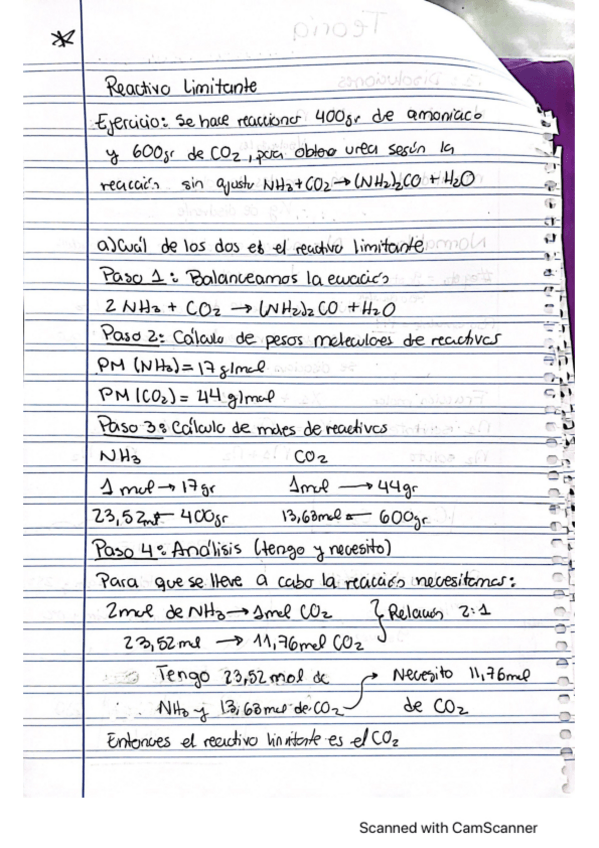 Teoria
Reactivo Limitante
Ejercicio: Se hace reaccionar 400gr de amoniaco
y 600gr de CO2, para obtener urea según la
reacción sin ajustar NH3+CO2→(NH2)2CO + H2O
a) Cuál de los dos es el reactivo limitante
Paso 1: Balanceamos la ecuación
2 NH3 + CO2 → (NH2)2 CO + H2O
Paso 2: Cálculo de pesos moleculares de reactivos
PM (NH3)= 17 g/mol
PM (CO2) = 44 g/mol
Paso 3: Cálculo de moles de reactivos
NH3 CO2
1 mol → 17gr 1mol → 44gr
23,52mol ← 400gr 13,63mol ← 600gr
Paso 4: Análisis (tengo y necesito)
Para que se lleve a cabo la reacción necesitamos:
2mol de NH3 → 1mol CO2 } Relación 2:1
23,52 mol → 11,76mol CO2
Tengo 23,52 mol de → Necesito 11,76mol
NH3 y 13,63mol de CO2 de CO2
Entonces el reactivo limitante es el CO2
Scanned with CamScanner